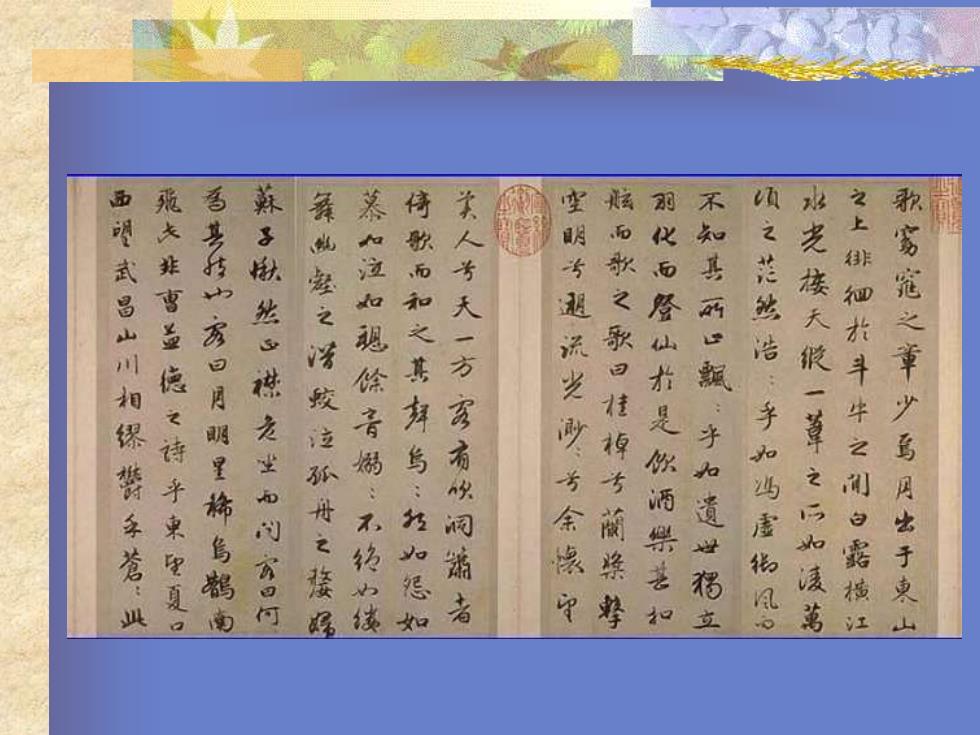 歌窈窕之章少焉月出于東山
之上徘徊於斗牛之間白露橫江
水光接天縱一葦之所如淩萬
頃之茫然浩：乎如馮虛御風而
不知其所止飄：乎如遺世獨立
羽化而登仙於是飲酒樂甚扣
舷而歌之歌曰桂棹兮蘭槳擊
空明兮遡流光渺：兮余懷望
美人兮天一方客有吹洞簫者
倚歌而和之其聲烏：然如怨如
慕如泣如聽餘音嫋：不絕如縷
舞幽壑之潛蛟泣孤舟之嫠婦
蘇子愀然正襟危坐而問客曰何
為其然也客曰月明星稀烏鵲南
飛此非曹孟德之詩乎東望夏口
西望武昌山川相繆鬱乎蒼：此